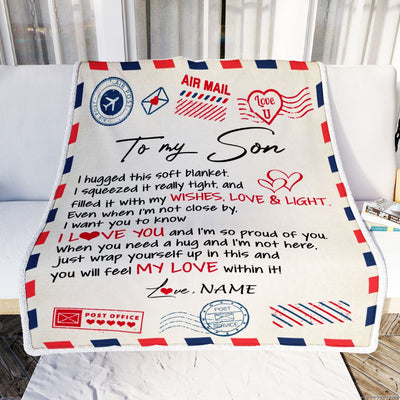 AIR POST
AIR MAIL
Love
U
To my Son
I hugged this soft blanket.
I squeezed it really tight, and
filled it with my WISHES, LOVE & LIGHT.
Even when I'm not close by,
I want you to know
I L♥VE YOU and I'm so proud of you.
When you need a hug and I'm not here,
just wrap yourself up in this and
you will feel MY LOVE within it!
Love, NAME
POST OFFICE
POST
SERVICE